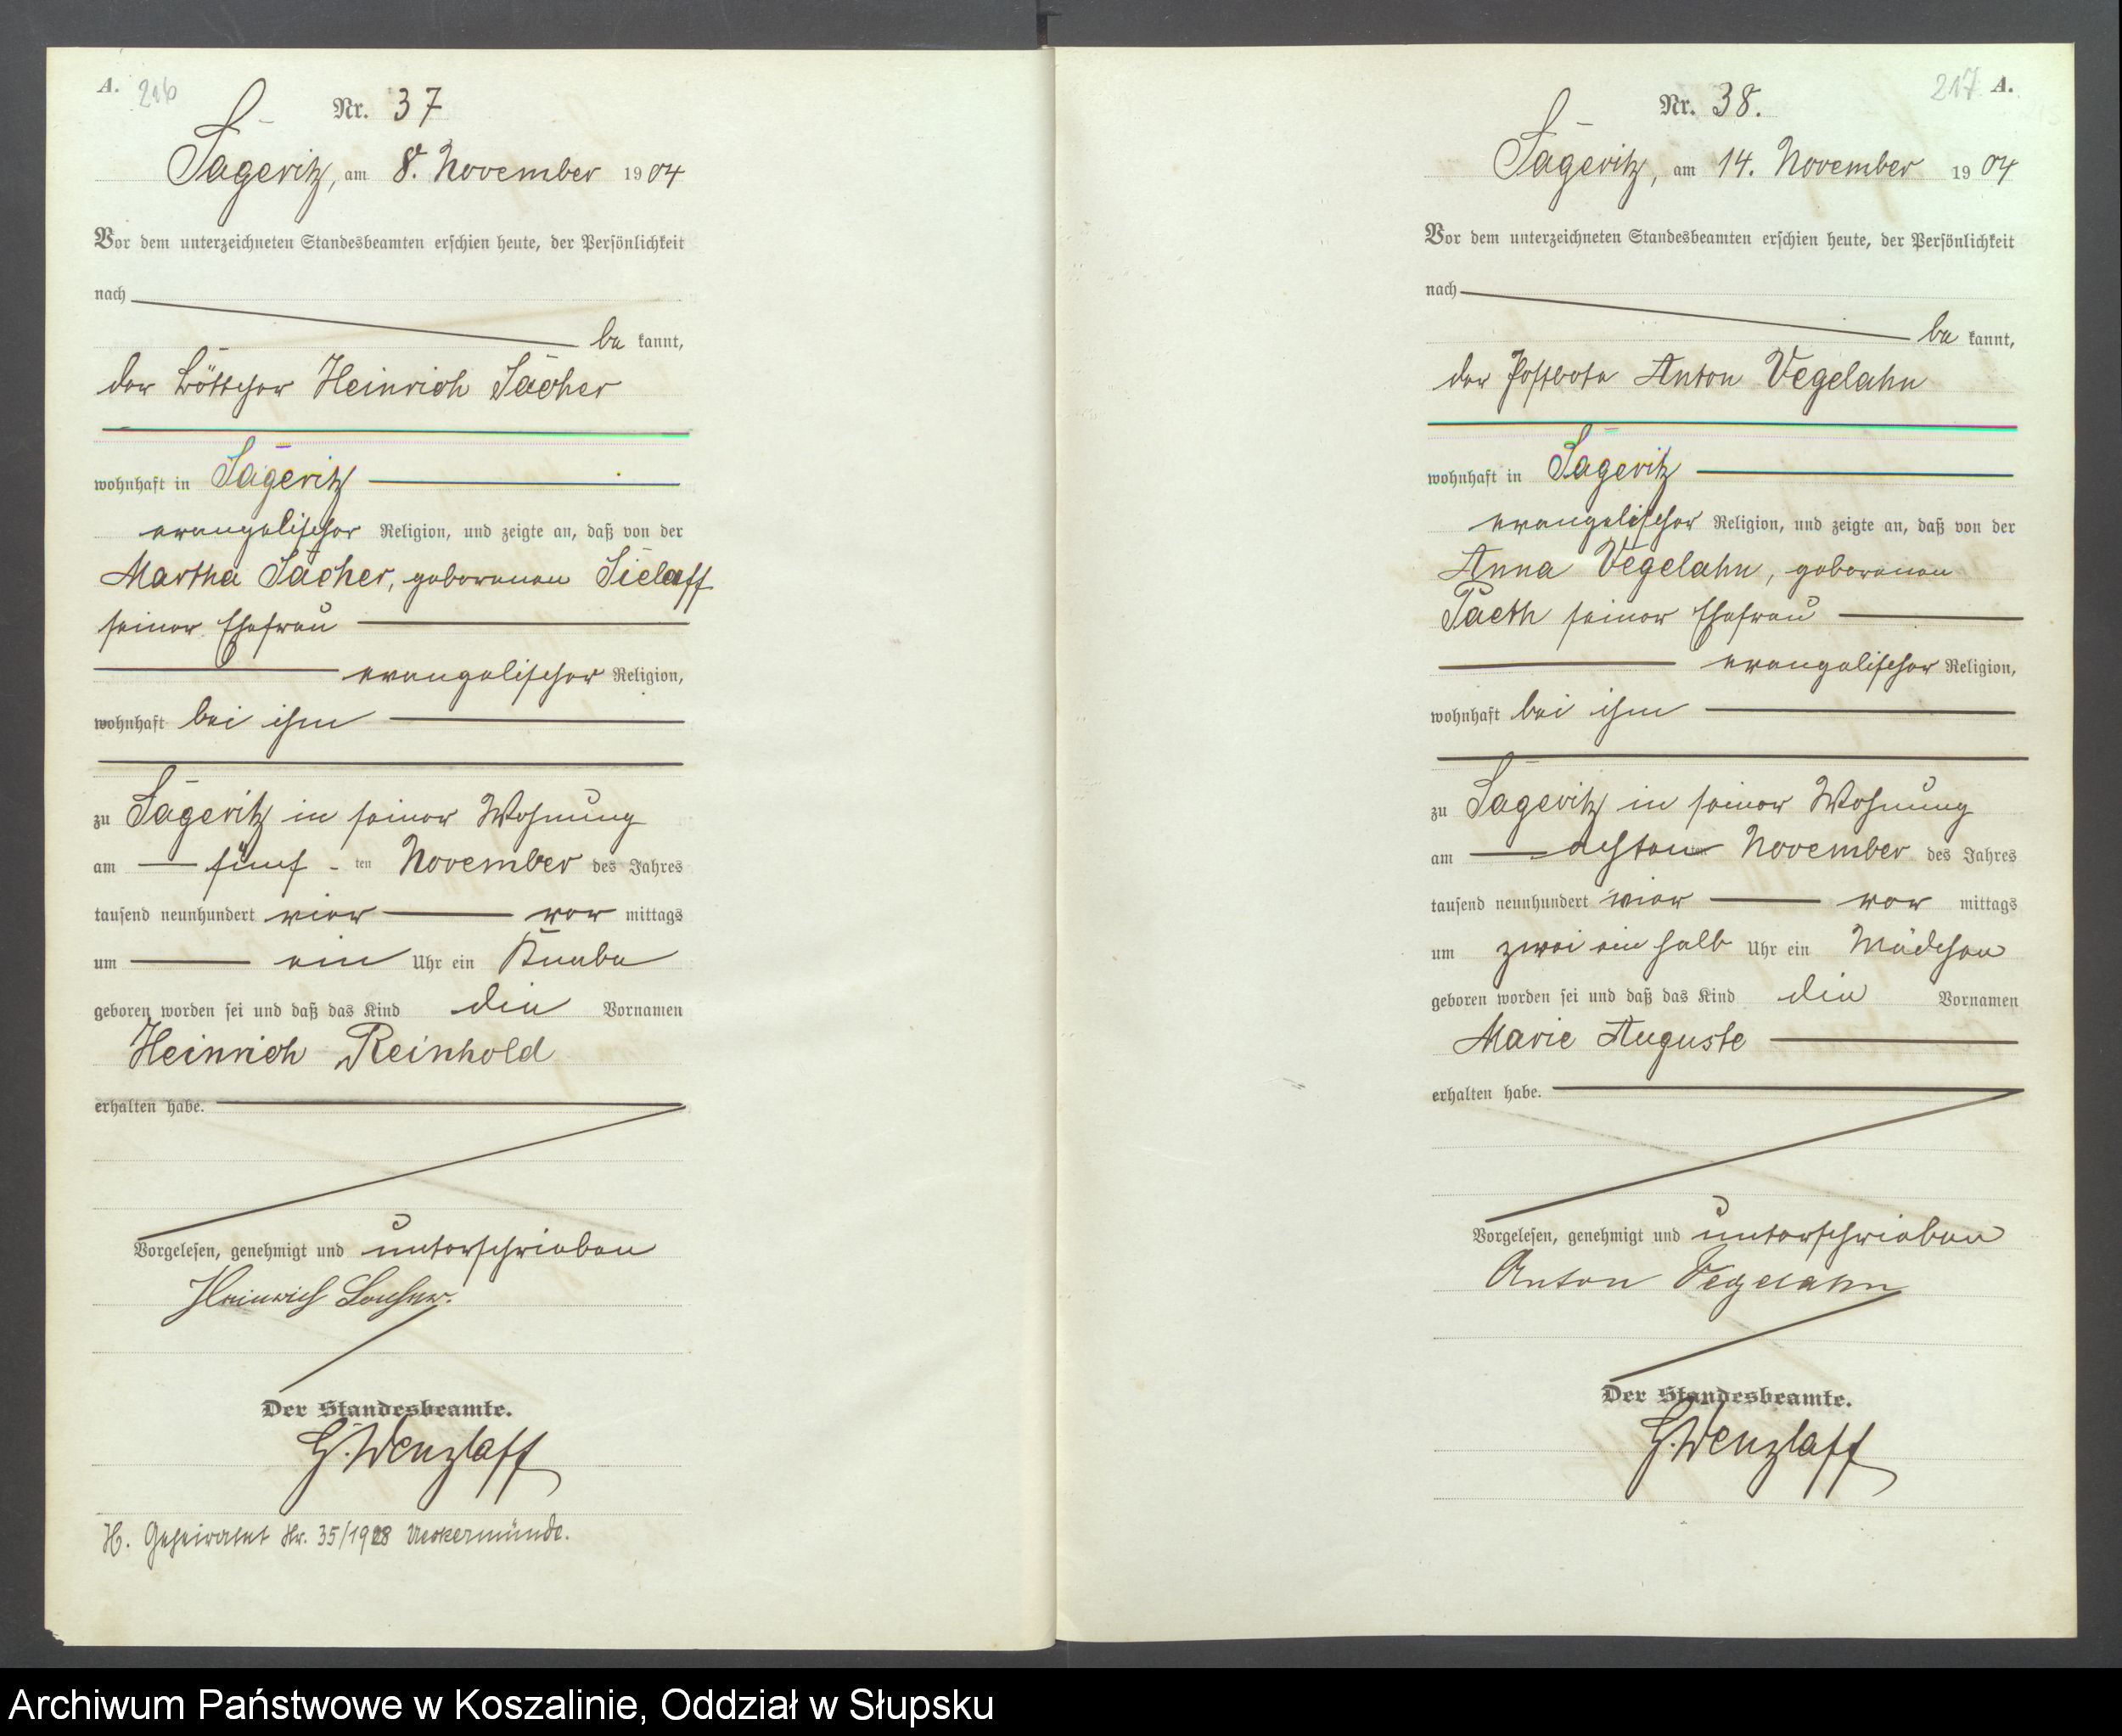 A. 216
Nr. 37
Sageritz, am 8. November 1904
Vor dem unterzeichneten Standesbeamten erschien heute, der Persönlichkeit
nach
be kannt,
der Böttcher Heinrich Sacher
wohnhaft in Sageritz
evangelischer Religion, und zeigte an, daß von der
Martha Sacher, geborenen Sielaff
seiner Ehefrau
evangelischer Religion,
wohnhaft bei ihm
zu Sageritz in seiner Wohnung
am fünf - ten November des Jahres
tausend neunhundert vier vor mittags
um ein Uhr ein Knabe
geboren worden sei und daß das Kind die Vornamen
Heinrich Reinhold
erhalten habe.
Vorgelesen, genehmigt und unterschrieben
Heinrich
Der Standesbeamte.
G. Wenzlaff
H. Geheiratet Nr. 35/1928 Ueckermünde.
217 A.
Nr. 38.
Sageritz, am 14. November 1904
Vor dem unterzeichneten Standesbeamten erschien heute, der Persönlichkeit
nach
be kannt,
der Postbote Anton Vegelahn
wohnhaft in Sageritz
evangelischer Religion, und zeigte an, daß von der
Anna Vegelahn, geborenen
Paeth seiner Ehefrau
evangelischer Religion,
wohnhaft bei ihm
zu Sageritz in seiner Wohnung
am achten November des Jahres
tausend neunhundert vier vor mittags
um zwei ein halb Uhr ein Mädchen
geboren worden sei und daß das Kind die Vornamen
Marie Auguste
erhalten habe.
Vorgelesen, genehmigt und unterschrieben
Anton Vegelahn
Der Standesbeamte.
G. Wenzlaff
Archiwum Państwowe w Koszalinie, Oddział w Słupsku